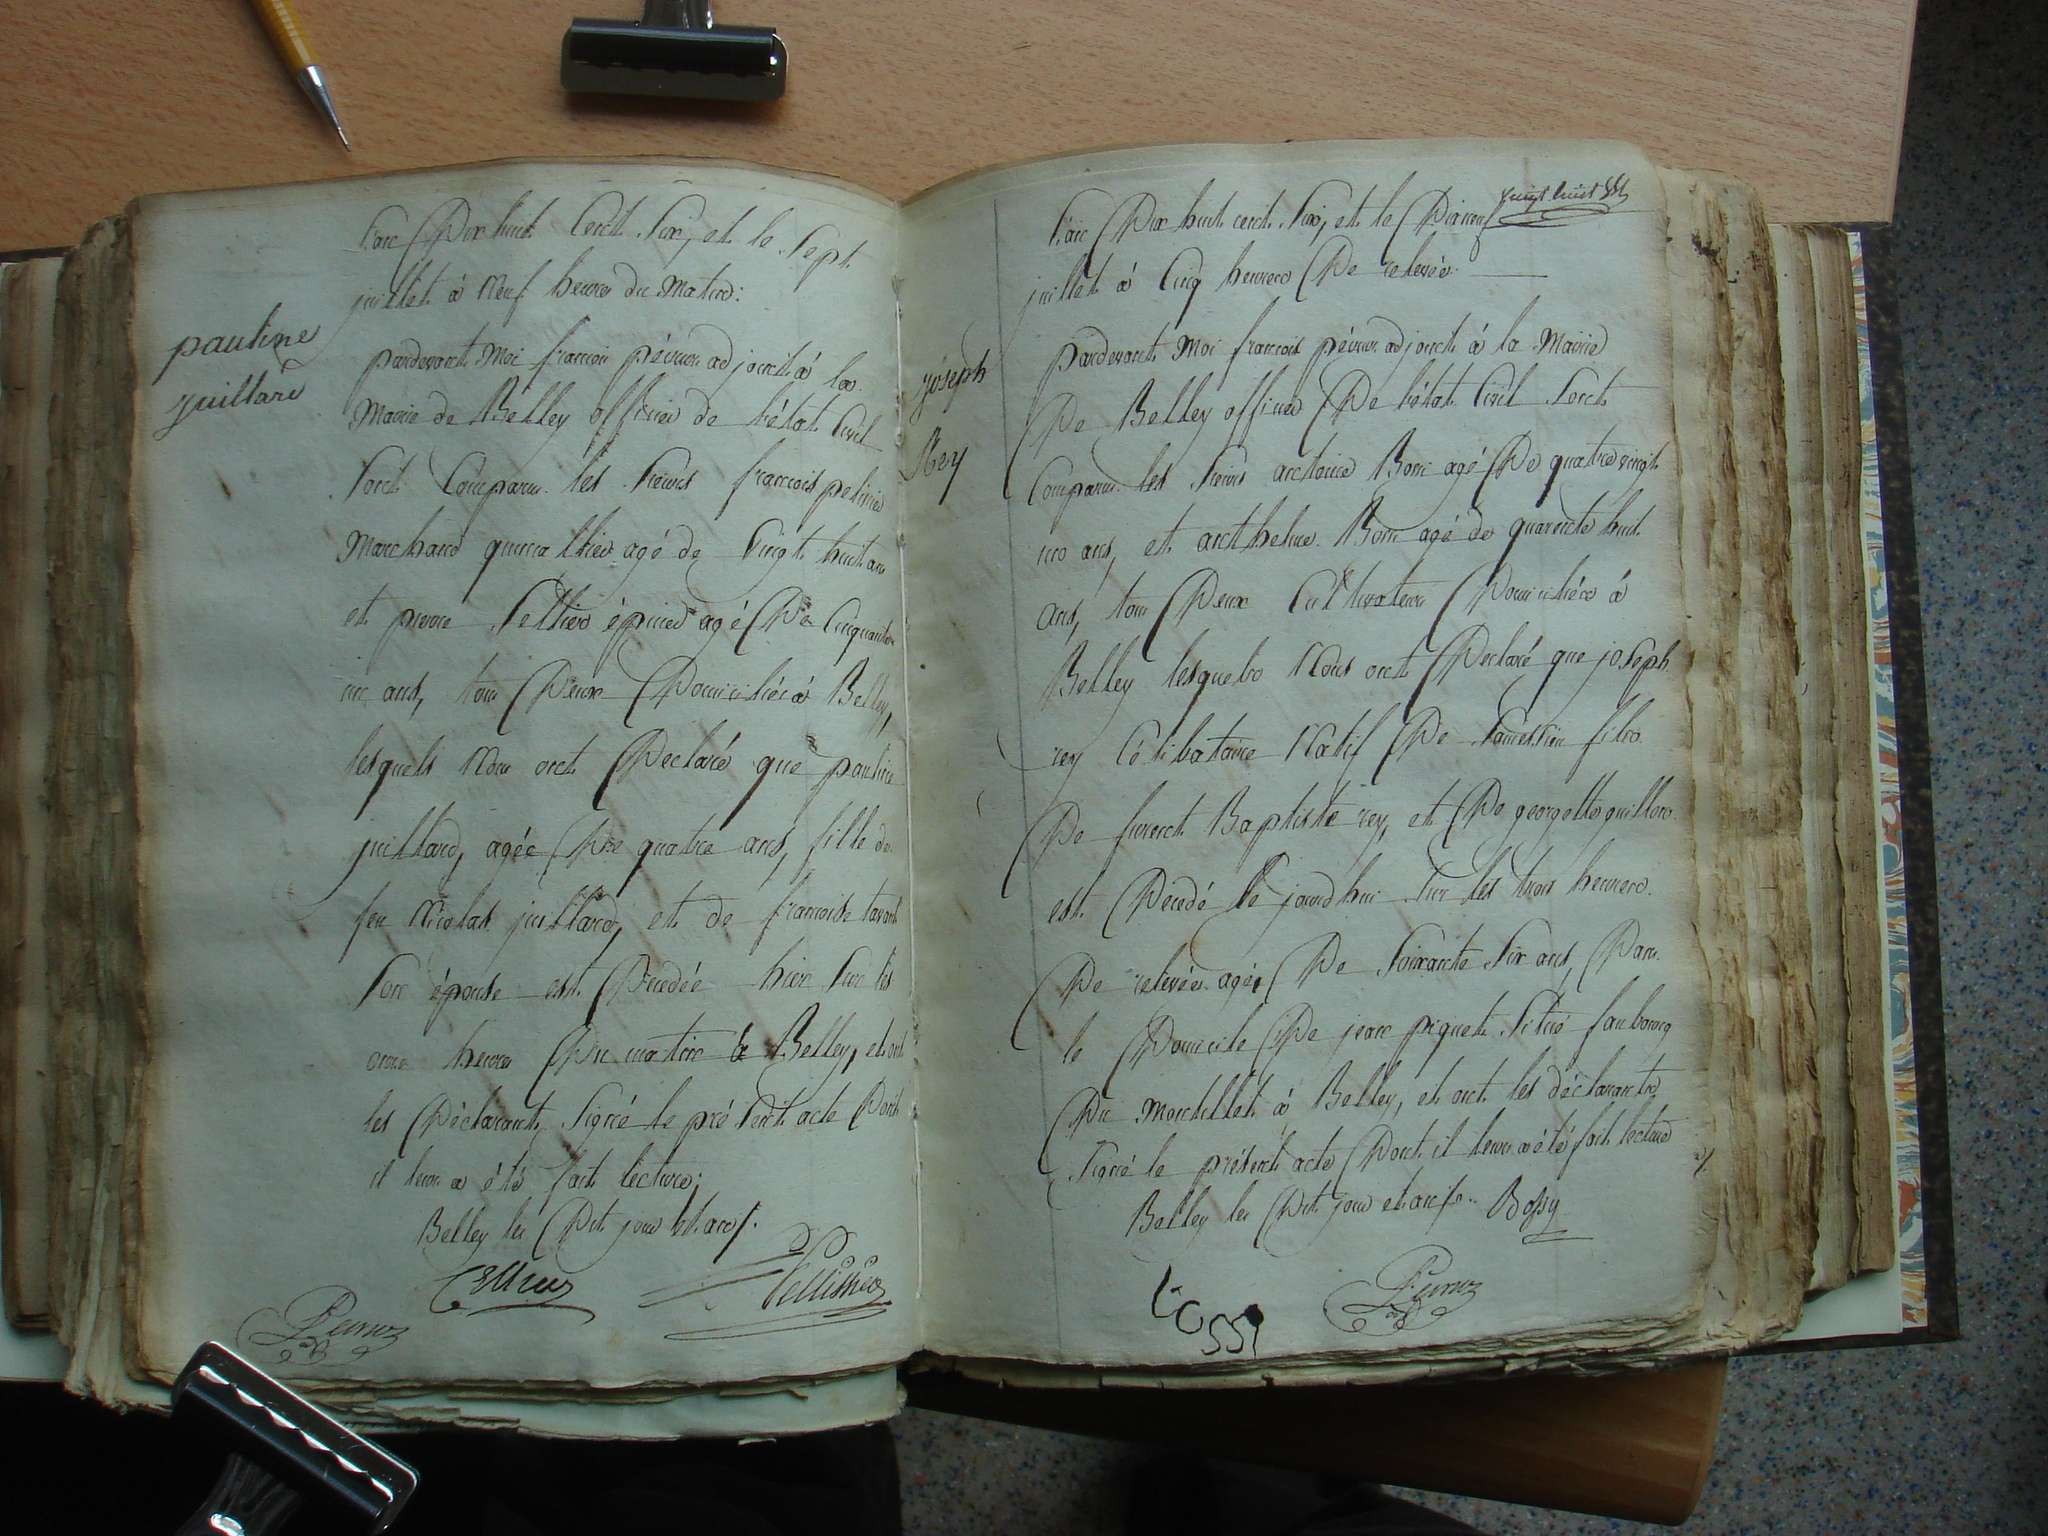 pauline
juillard
L'an Dix huit Cent Six, et le Sept
juillet à Neuf heures du Matin:
pardevant Moi francois pévrier adjoint à la
Mairie de Belley officier de l'état Civil
Sont Comparu les Sieurs francois pelissier
Marchand quincallier agé de Vingt huit ans
et pierre Sellier épicier agé De Cinquante
un ans, tous Deux Domiciliés à Belley,
lesquels Nous ont Declaré que pauline
juillard, agée De quatre ans, fille de
feu Nicolas juillard, et de francoise
Son épouse est Decedée hier Sur les
onze heures Du matin à Belley, et ont
les Déclarants Signé le présent acte Dont
il leur a été fait lecture;
Belley les Dit jour et an f.
Pellissier
joseph
Rey
L'an Dix huit cent Six, et le Dix neuf
vingt huit
juillet à Cinq heures De relevée.
pardevant Moi francois pévrier adjoint à la Mairie
De Belley officier De l'état Civil Sont
Comparu les Sieurs antoine Bossi agé De quatre vingt
un ans, et anthelme Bossi agé de quarante huit
ans, tous Deux Cultivateurs Domiciliés à
Belley lesquels Nous ont Declaré que joseph
rey Célibataire Natif De fils
De furent Baptiste rey, et De georgette
est Decedé Ce jourd'hui Sur les trois heures
De relevée agé De Soixante Six ans, Dans
le Domicile De jean piquet Situé faubourg
Du Montillet à Belley, et ont les déclarants
Signé le présent acte Dont il leur a été fait lecture
Belley les Dit jour et an f. Bossy
Bossi